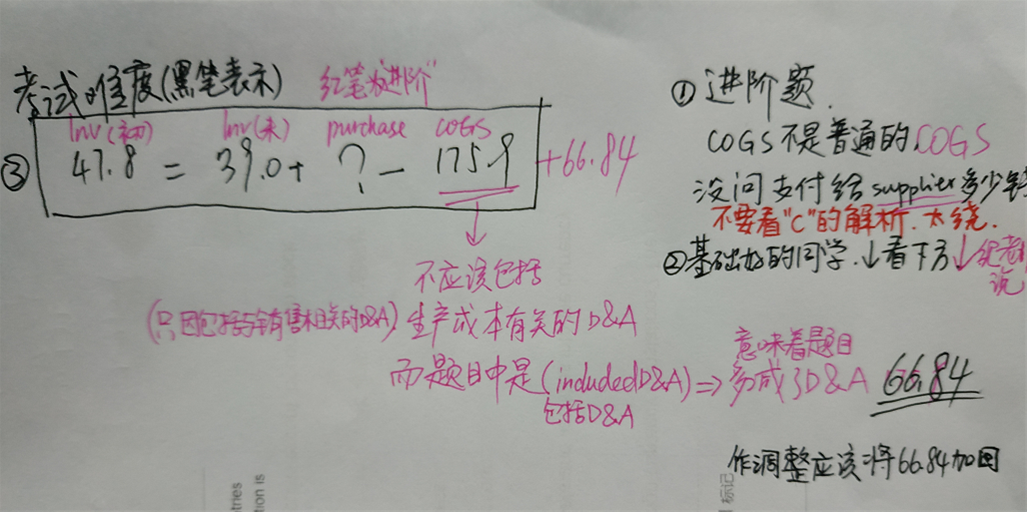 考试难度(黑笔表示) 红笔为"进阶"
Inv(初) Inv(末) purchase COGS
③ 47.8 = 39.0 + ? - 175.9 +66.84
不应该包括
(只因包括与销售相关的D&A) 生产成本有关的D&A
而题目中是(includedD&A) => 多减了D&A 66.84
包括D&A
意味着题目
作调整应该将66.84加回
① 进阶题.
COGS不是普通的COGS
没问支付给supplier多少钱
不要看"C"的解析.太绕.
②基础好的同学.↓看下方↓
说
tries
tion is
标记